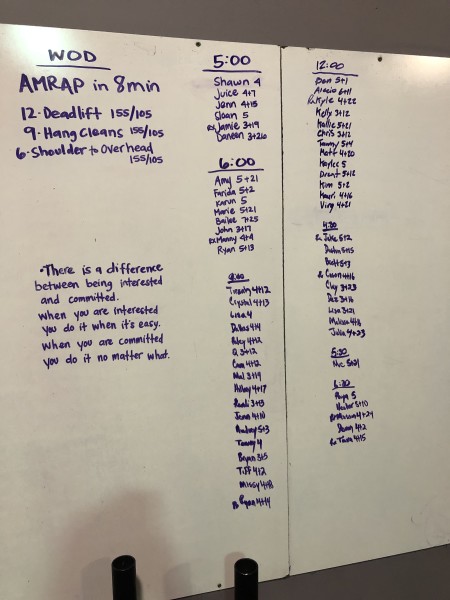 WOD
AMRAP in 8min
12. Deadlift 155/105
9. Hang Cleans 155/105
6. Shoulder to Overhead
155/105
• There is a difference
between being interested
and committed.
When you are interested
you do it when it's easy.
When you are committed
you do it no matter what.
5:00
Shawn 4
Juice 4+7
Jenn 4+15
Sloan 5
Rx Jamie 3+19
Daneen
6:00
Amy 5+21
Farida 5+2
Karun 5
Marie 5+21
Bailee 7+25
John 3+17
Rx Manny 4+4
Ryan 5+13
Timothy 4+12
Crystal 4+13
Lisa 4
Dallas 4+4
Riley 4+12
Q 3+12
Cam 4+12
Mal 3+19
Hillary 4+17
3+13
Jenn 4+10
Audrey 5+3
Tammy 4
Bryan 3+5
Tiff 4+2
Missy 4+18
Rx Ryan 4+14
12:00
Dan 5+1
6+11
Rx Kyle 4+22
Kelly 3+12
Hallie 5+21
Chris 3+12
Tammy 5+4
Matt 4+20
Kaylee 5
Brent 5+12
Kim 5+2
4+16
4+21
4:30
Rx Jake 5+12
Dustin 5+15
Brett 5+3
Rx 4+16
Clay 3+23
Dez 3+16
Lisa 3+21
Melissa 4+8
Julia 4+23
5:30
Nic 5+21
6:30
5
Hector 5+10
4+24
4+2
Rx Tara 4+15